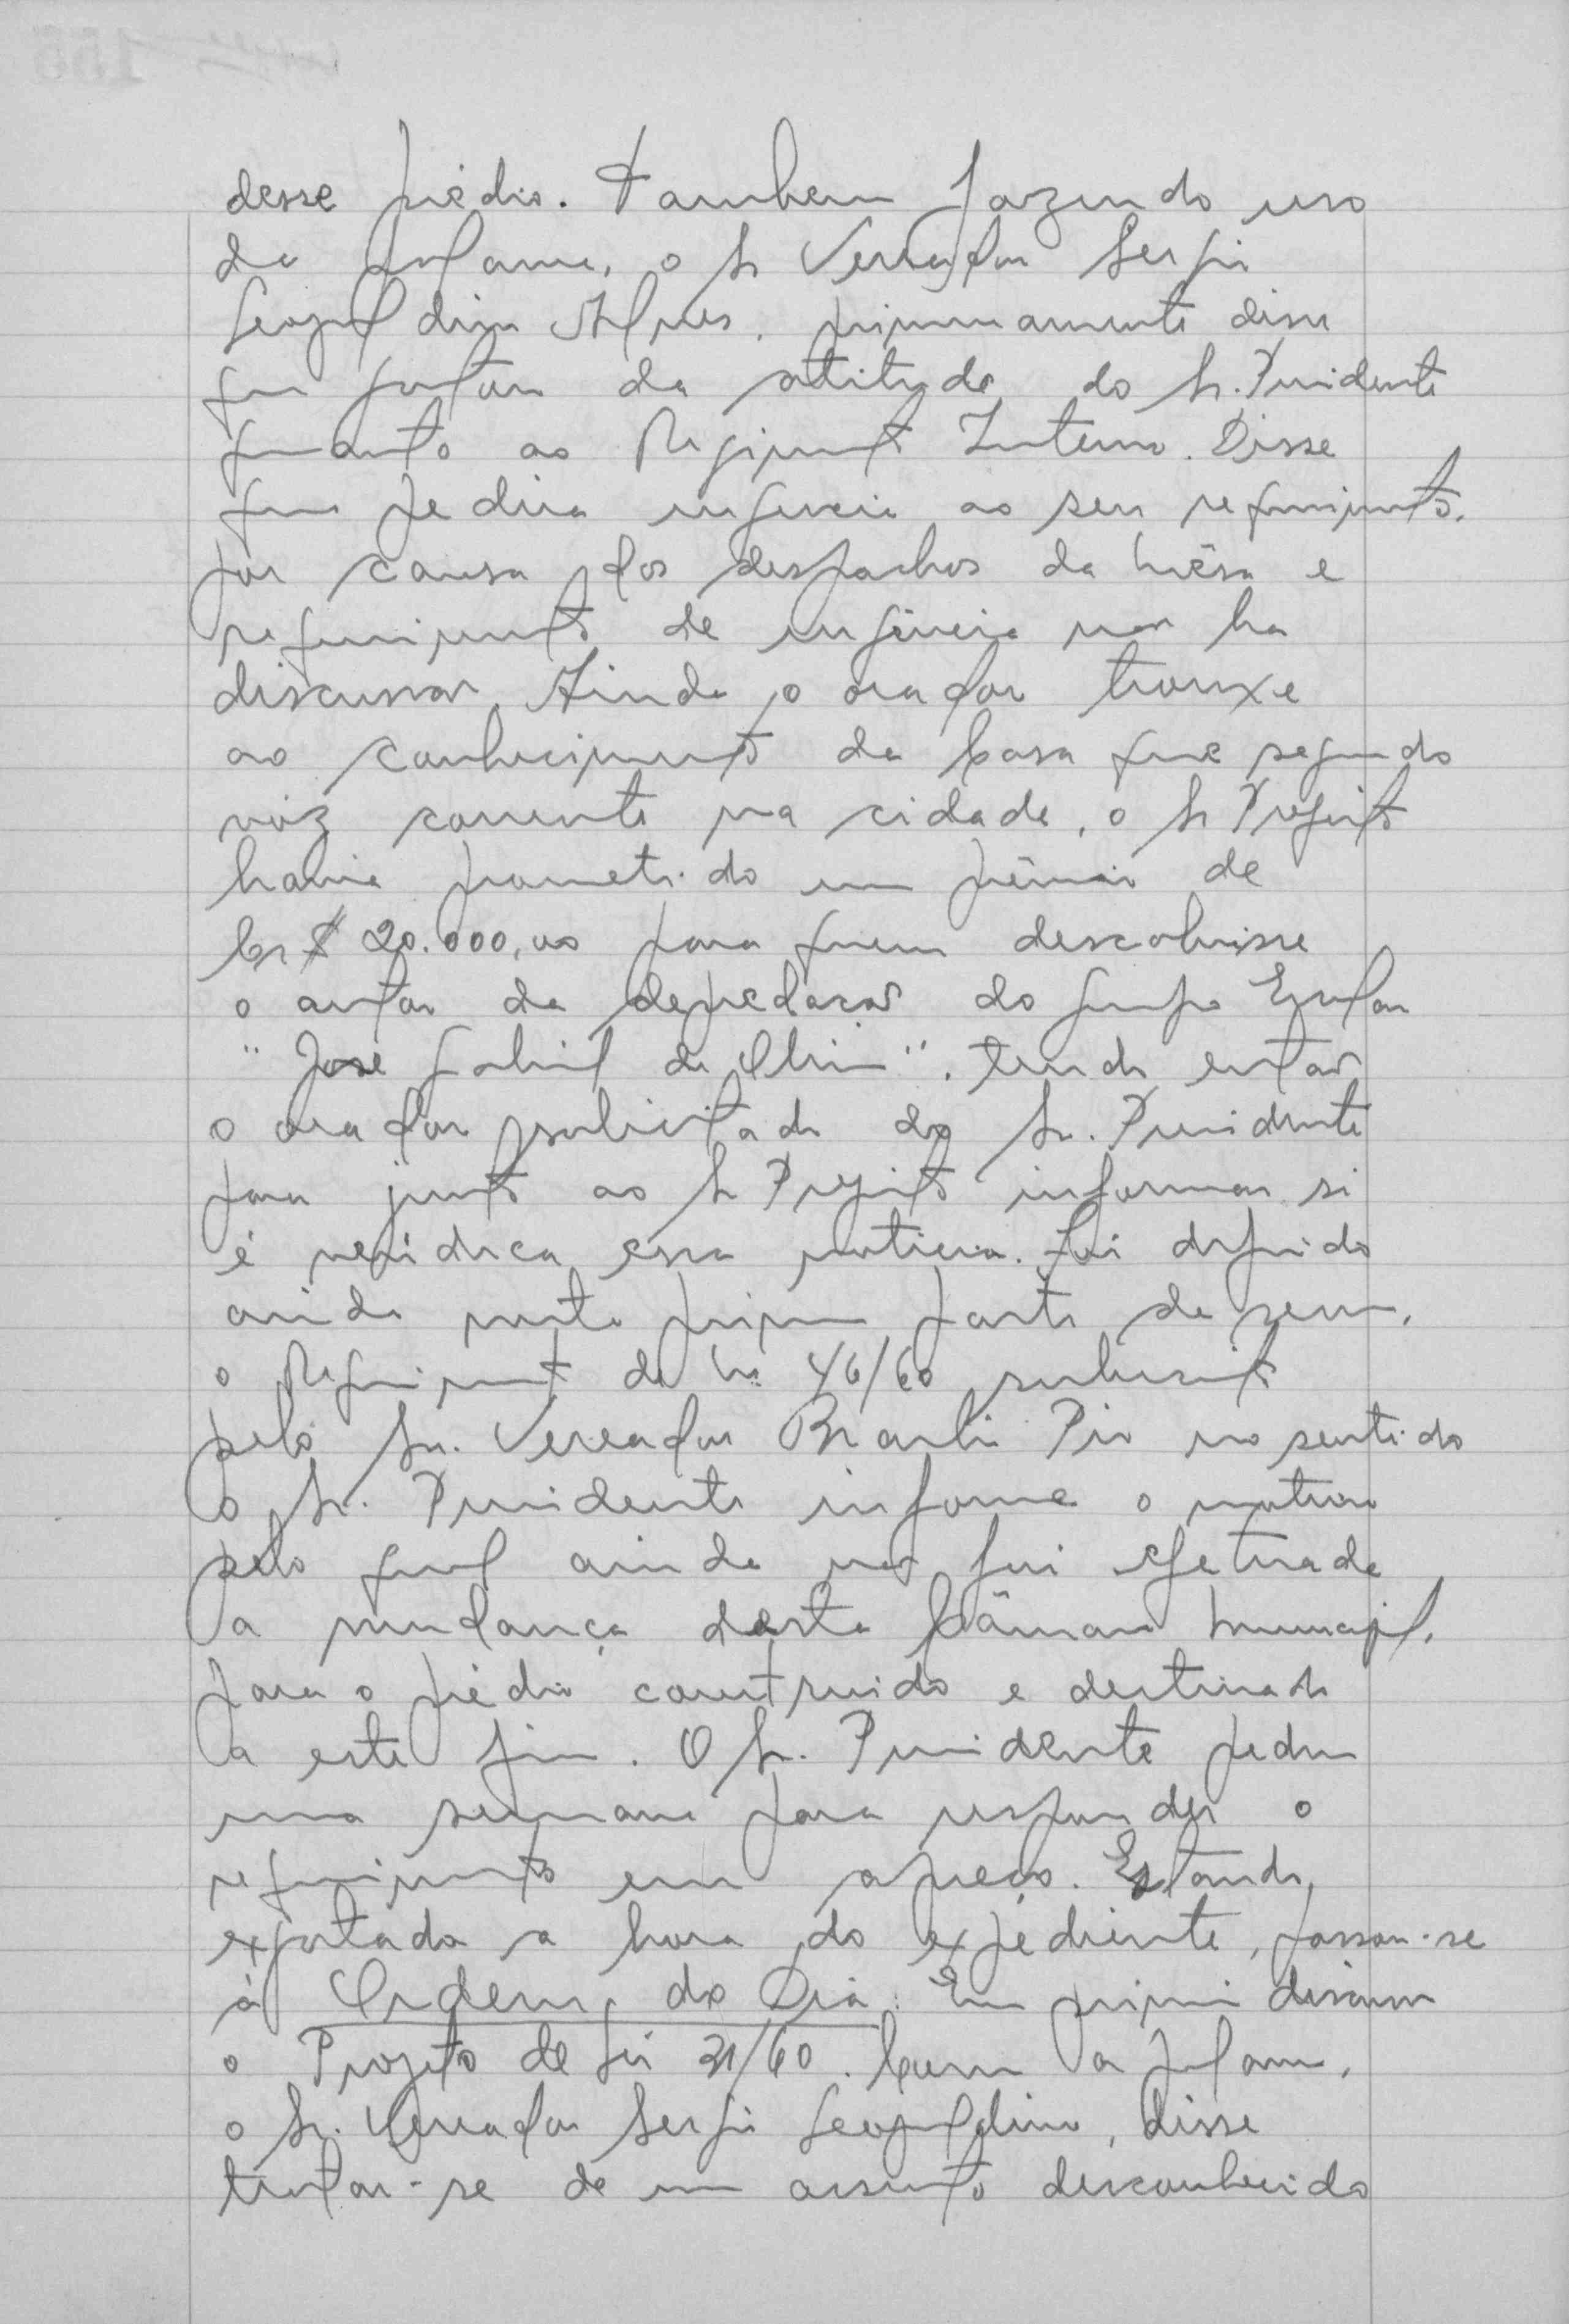 desse prédio. Tambem fazendo uso
da palavra, o Sr Vereador Sergio
Leopoldino Alves, primeiramente disse
que gostou da atitude do Sr. Presidente
quanto ao Regimento Interno. Disse
que pedira urgencia ao seu requerimento,
por causa dos despachos da mêsa e
requerimento de urgência não ha
discussão. Ainda o orador trouxe
ao conhecimento da Casa que segundo
voz corrente na cidade, o Sr Prefeito
havia prometido um prêmio de
Cr$ 20.000,00 para quem descobrisse
o autor da depredação do Grupo Escolar
"José Gabriel de Oliveira", tendo então
o orador solicitado do Sr. Presidente
para junto ao Sr Prefeito informar si
é verídica essa noticia. Foi deferido
ainda nesta primeira parte da sessão,
o Requerimento de nº 46/60 subscrito
pelo Sr. Vereador Pio no sentido
o Sr. Presidente informe o motivo
pelo qual ainda não foi efetuada
a mudança desta Câmara Municipal,
para o prédio construido e destinado
a este fim. O Sr. Presidente pediu
uma semana para responder o
requerimento em apreço. Estando
esgotada a hora do expediente, passou-se
à Ordem do Dia: Em primeira discussão
o Projeto de Lei 31/60. Com a palavra,
o Sr. Vereador Sergio Leopoldino, disse
tratar-se de um assunto desconhecido